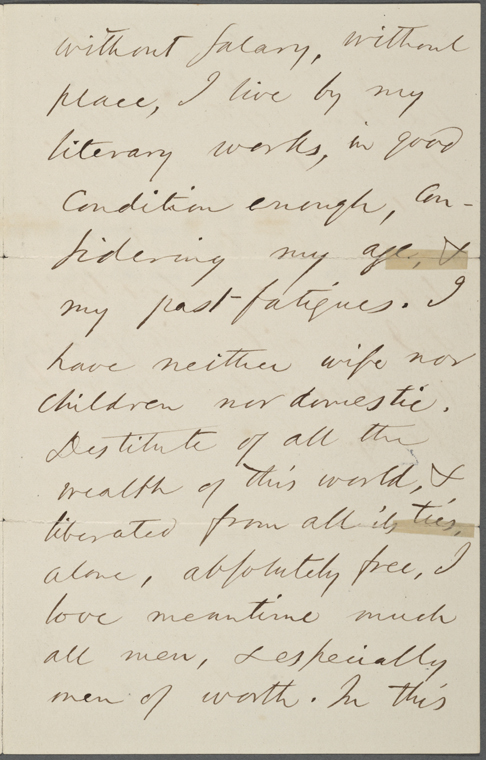 without salary, without
place, I live by my
literary works, in good
condition enough, con-
sidering my age, &
my past fatigues. I
have neither wife nor
children nor domestic.
Destitute of all the
wealth of this world, &
liberated from all its ties,
alone, absolutely free, I
love meantime much
all men, & especially
men of worth. In this